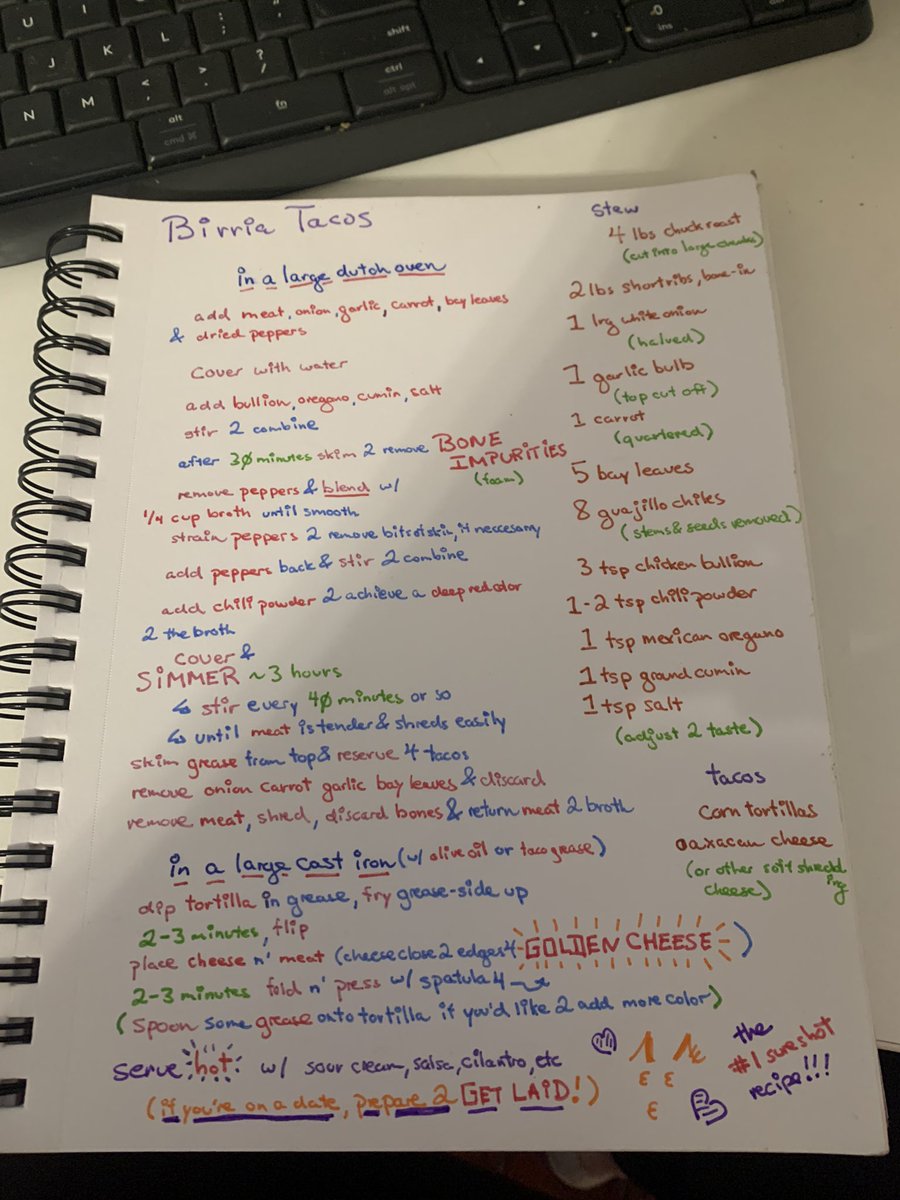 U
J
K
L
:
;
"
'
shift
N
M
<
,
>
.
?
/
ctrl
alt opt
alt
cmd ⌘
fn
0
ins
Birria Tacos
in a large dutch oven
add meat, onion, garlic, carrot, bay leaves
& dried peppers
Cover with water
add bullion, oregano, cumin, salt
stir 2 combine
after 30 minutes skim 2 remove BONE
IMPURITIES
(foam)
remove peppers & blend w/
1/4 cup broth until smooth
strain peppers 2 remove bits of skin, if neccesary
add peppers back & stir 2 combine
add chili powder 2 achieve a deep red color
2 the broth
cover &
SIMMER ~3 hours
↳ stir every 40 minutes or so
↳ until meat is tender & shreds easily
skim grease from top & reserve 4 tacos
remove onion carrot garlic bay leaves & discard
remove meat, shred, discard bones & return meat 2 broth
in a large cast iron (w/ olive oil or taco grease)
dip tortilla in grease, fry grease-side up
2-3 minutes, flip
place cheese n' meat (cheese close 2 edges 4 GOLDEN CHEESE)
2-3 minutes fold n' press w/ spatula 4
(spoon some grease onto tortilla if you'd like 2 add more color)
serve hot w/ sour cream, salsa, cilantro, etc
(if you're on a date, prepare 2 GET LAID!)
Stew
4 lbs chuck roast
(cut into large chunks)
2 lbs shortribs, bone-in
1 lrg white onion
(halved)
1 garlic bulb
(top cut off)
1 carrot
(quartered)
5 bay leaves
8 guajillo chiles
(stems & seeds removed)
3 tsp chicken bullion
1-2 tsp chili powder
1 tsp mexican oregano
1 tsp ground cumin
1 tsp salt
(adjust 2 taste)
tacos
corn tortillas
oaxacan cheese
(or other soft shredding
cheese)
the
#1 sureshot
recipe!!!